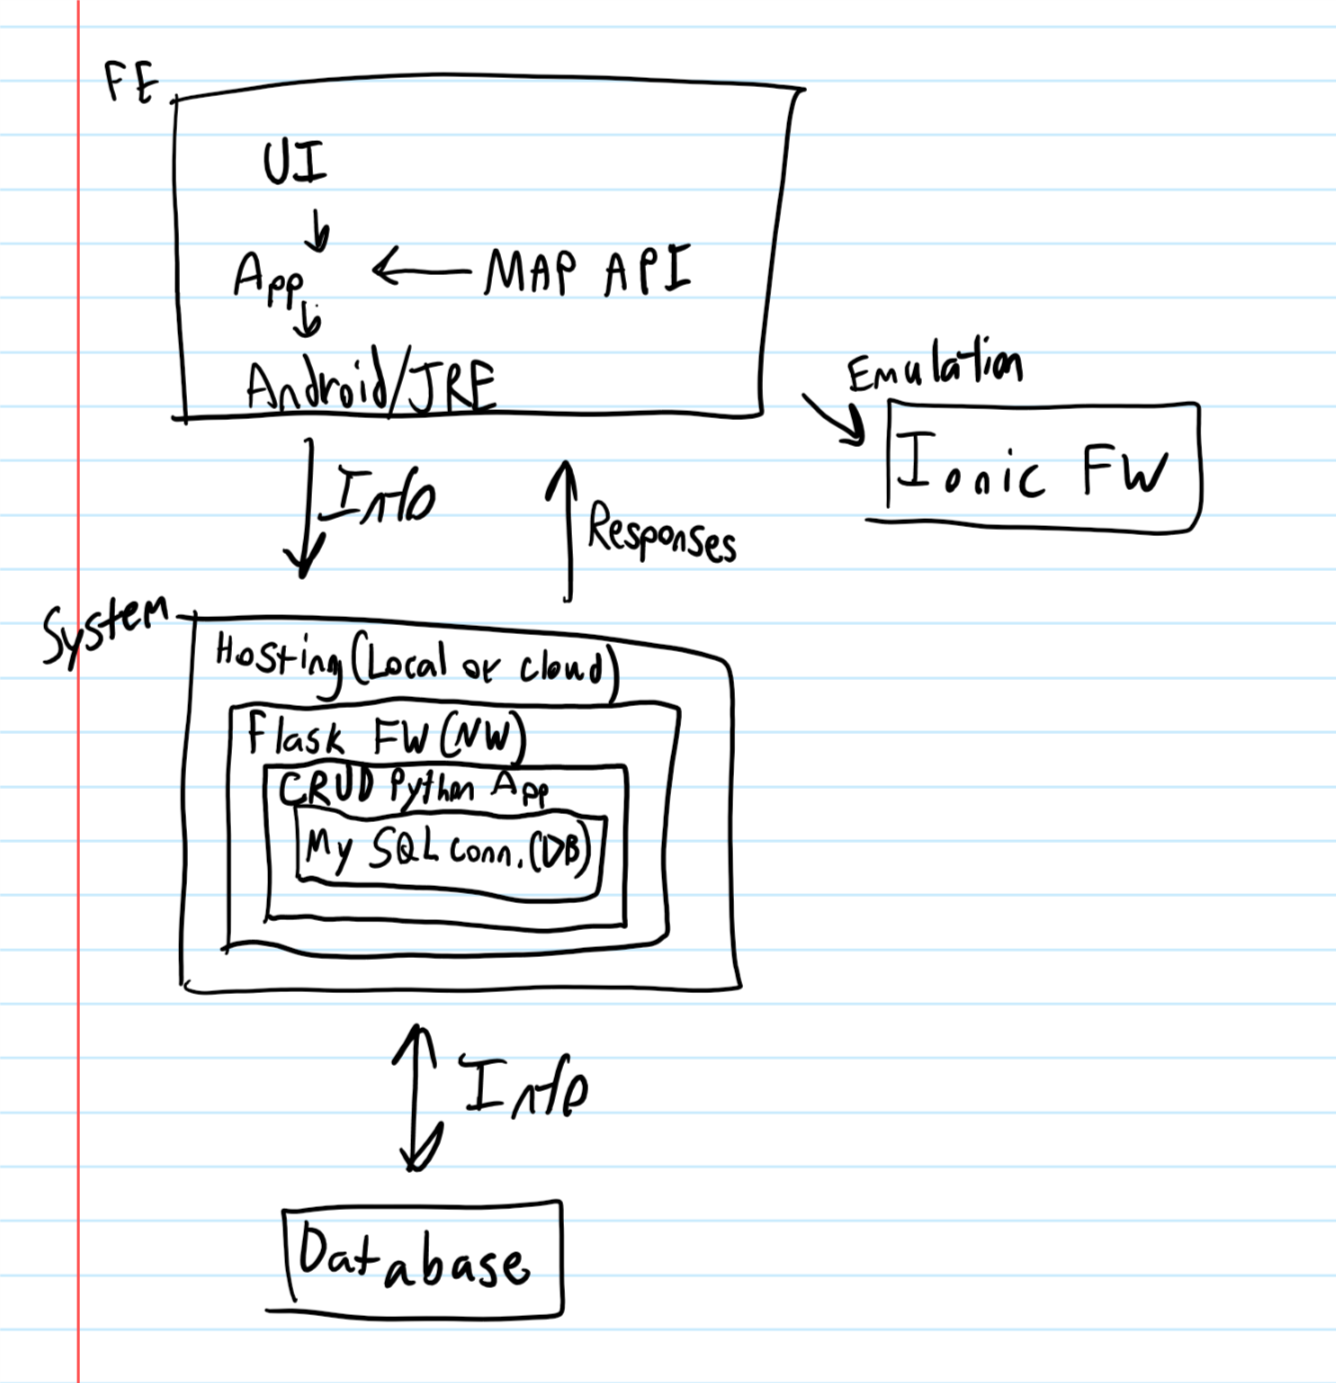 FE
UI
App ← MAP API
Android/JRE
Emulation
Ionic FW
Info
Responses
System
Hosting (Local or cloud)
Flask FW (NW)
CRUD Python App
My SQL conn. (DB)
Info
Database